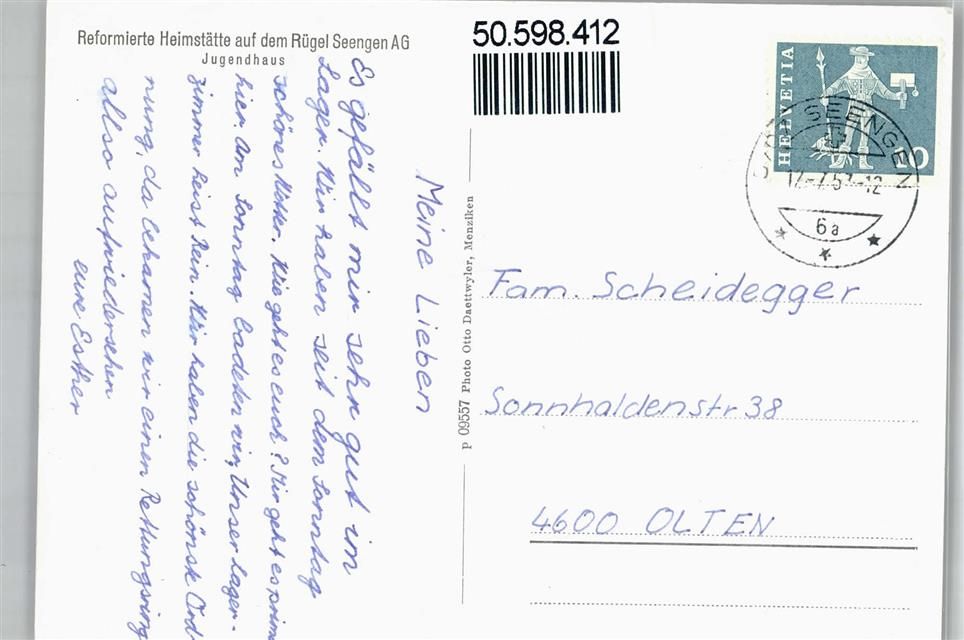 Reformierte Heimstätte auf dem Rügel Seengen AG
Jugendhaus
Meine Lieben
Es gefällt mir sehr gut im
Lager. Wir haben seit dem Sonntag
schönes Wetter. Wie geht es euch? Mir geht es prima
hier. Am Sonntag badeten wir, Unser Lager-
zimmer heist Rein. Wir haben die schönste Ord-
nung, da bekamen wir einen Rettungsring
allso aufwiedersehen
eure Esther
p 09557 Photo Otto Daettwyler, Menziken
50.598.412
HELVETIA
10
SEENGEN
6a
Fam. Scheidegger
Sonnhaldenstr 38
4600 OLTEN